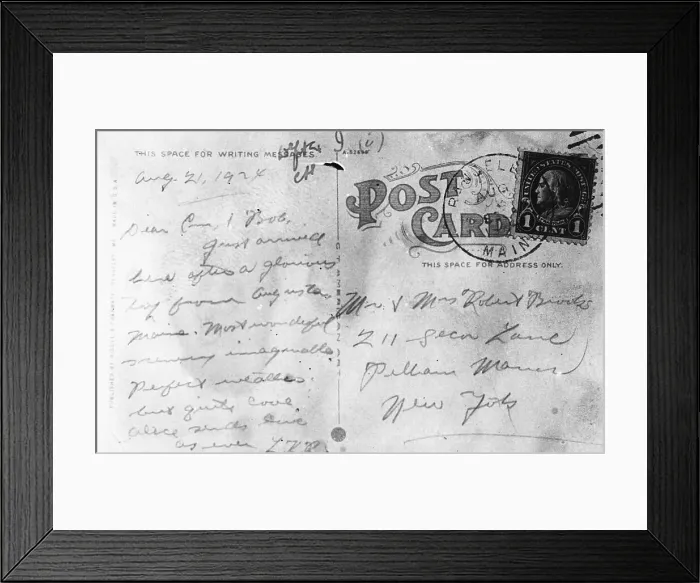 THIS SPACE FOR WRITING MESSAGES
Aug. 21, 1924
Dear Em & Bob,
Just arrived
here after a glorious
day from Augusta,
Maine. Most wonderful
scenery imaginable.
Perfect weather
but quite cool.
Alice sends love
as ever
POST
CARD
MAINE
UNITED STATES POSTAGE
1 CENT 1
THIS SPACE FOR ADDRESS ONLY.
Mr. & Mrs Robert Brooks
211 Secor Lane
Pelham Manor
New York